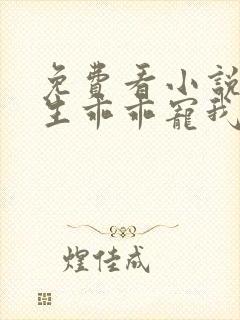 免費看小說
生乖乖寵我
煌佳成